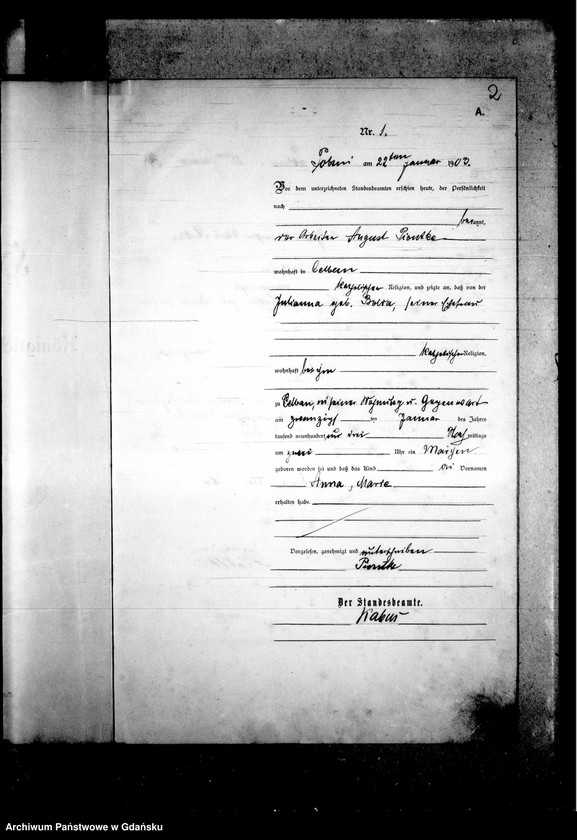 2
A.
Nr. 1.
am 22ten Januar 1903.
Vor dem unterzeichneten Standesbeamten erschien heute, der Persönlichkeit
nach
bekannt,
der Arbeiter August Piontke
wohnhaft in Celbau
katholischer Religion, und zeigte an, daß von der
Julianna geb. seiner Ehefrau
katholischer Religion,
wohnhaft bei ihm
zu Celbau, in seiner Wohnung u. Gegenwart
am zwanzigst ten Januar des Jahres
tausend neunhundert und drei Nachmittags
um zwei Uhr ein Mädchen
geboren worden sei und daß das Kind die Vornamen
Anna, Marie
erhalten habe.
Vorgelesen, genehmigt und unterschrieben
Piontke
Der Standesbeamte.
Archiwum Państwowe w Gdańsku